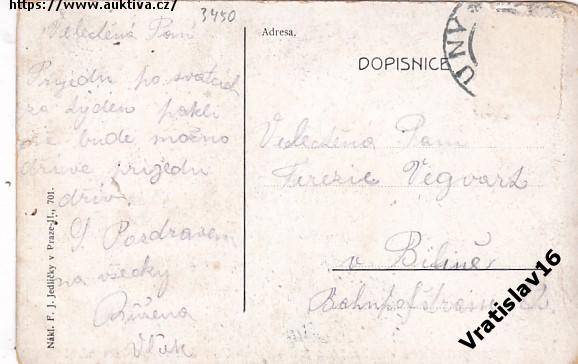 https://www.auktiva.cz/
3450
Velectěná Paní
Přijedu po svátcích
za týden pakli
se bude možno
dříve přijedu
dřív.
S Pozdravem
na všecky
Růžena
Vlčk
Nákl. F. J. Jedličky v Praze-II., 701.
Adresa.
DOPISNICE
UNY
Velectěná Paní
Terezie Vegvart
v Bílině
Bahnhofstrasse
Vratislav16